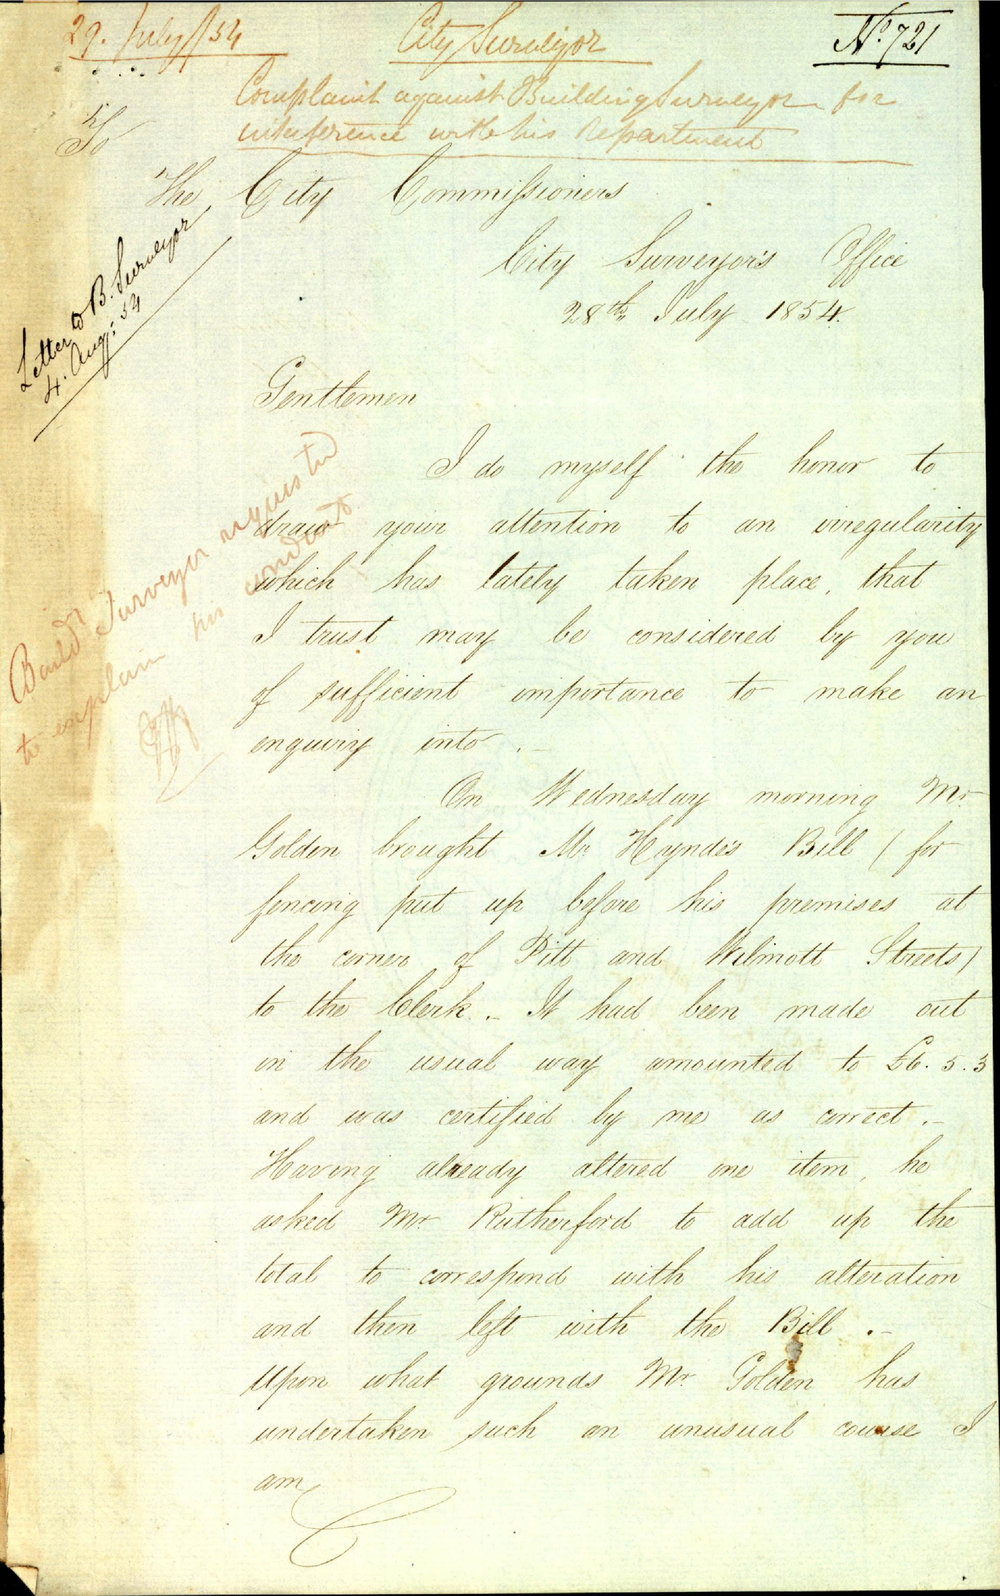 29. July / 54
City Surveyor
No. 721
Complaint against Building Surveyor for
interference with his Department
To
The City Commissioners
City Surveyor's Office
28th July 1854.
Letter to B. Surveyor
4. Aug: 54
Gentlemen
Build. Surveyor requested
to explain his conduct
I do myself the honor to
draw your attention to an irregularity
which has lately taken place, that
I trust may be considered by you
of sufficient importance to make an
enquiry into .-
On Wednesday morning Mr
Golden brought Mr Hyndes Bill ( for
fencing put up before his premises at
the corner of Pitt and Wilmott Streets)
to the Clerk .- It had been made out
in the usual way amounted to £6.5.3
and was certified by me as correct .-
Having already altered one item, he
asked Mr Rutherford to add up the
total to correspond with his alteration
and then left with the Bill .-
Upon what grounds Mr Golden has
undertaken such an unusual course I
am